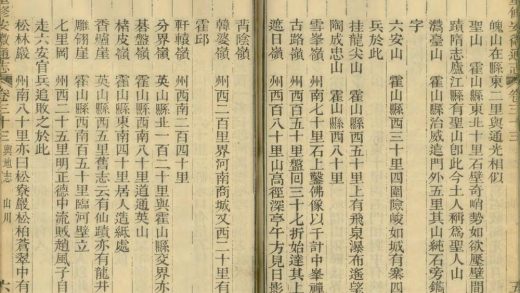 魄山在縣東二里與通光相似
聖山 霍山縣東北十里石壁奇峭勢如欲墜壁間
蹟隋志廬江縣有聖山卽此今土人稱爲聖人山
臺山 霍山縣治威遠門外五里其山純石旁鐫
字
六安山 霍山縣西三十里四圍險峻如城有寨四
兵於此
挂龍尖山 霍山縣西五十里上有飛泉瀑布遙望
陶成忠山 霍山縣西八十里
雪峯嶺 州南七十里石上鑿佛像以千計中峯禪
古路嶺 州西百五十里盤回三十七折始達其上
遮日嶺 州西百八十里山高徑深亭午方見日影
背陰嶺
韓婆嶺 州西二百里界河南商城又西二十里有
霍邱
軒轅嶺 州西南二百四十里
分界嶺 英山縣北一百二十里與霍山縣交界亦
碁盤嶺 霍山縣南八十里道通英山
楮皮嶺 霍山縣東南四十里居人造紙處
香爐崖 霍山縣西五里舊志云有仙蹟亦有龍井
雕翎崖 霍山縣西南百五十里臨河壁立
七里岡 州西二十五里明正德中流賊趙風子自
走六安官兵追敗之於此
松林巖 州南八十里亦曰松寮巖松柏蒼翠中有
重修安徽通志 卷三十三 輿地志 山川 六